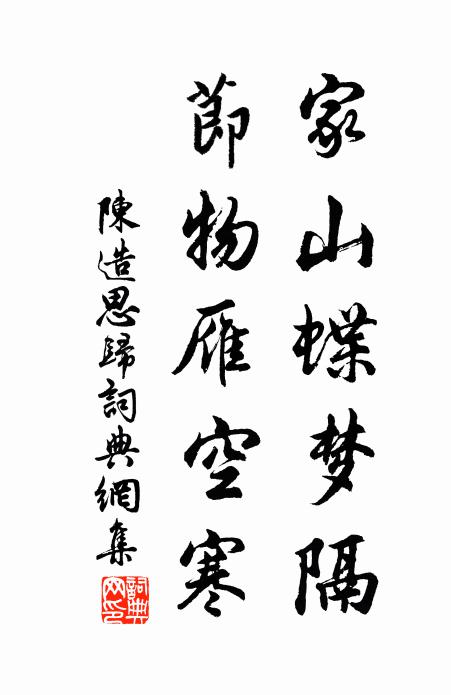 家山蝶梦隔
節物雁空寒
陳造思歸詞典網集
詞典網印